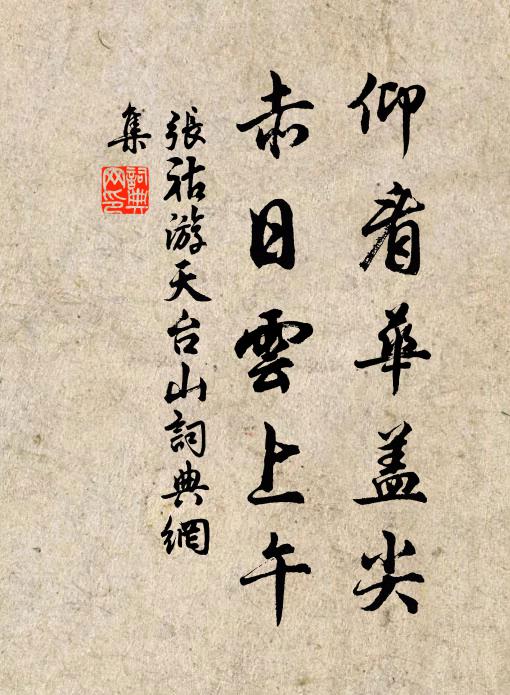 仰看華盖尖
赤日雲上午
張祜游天台山詞典網
集
詞典网印